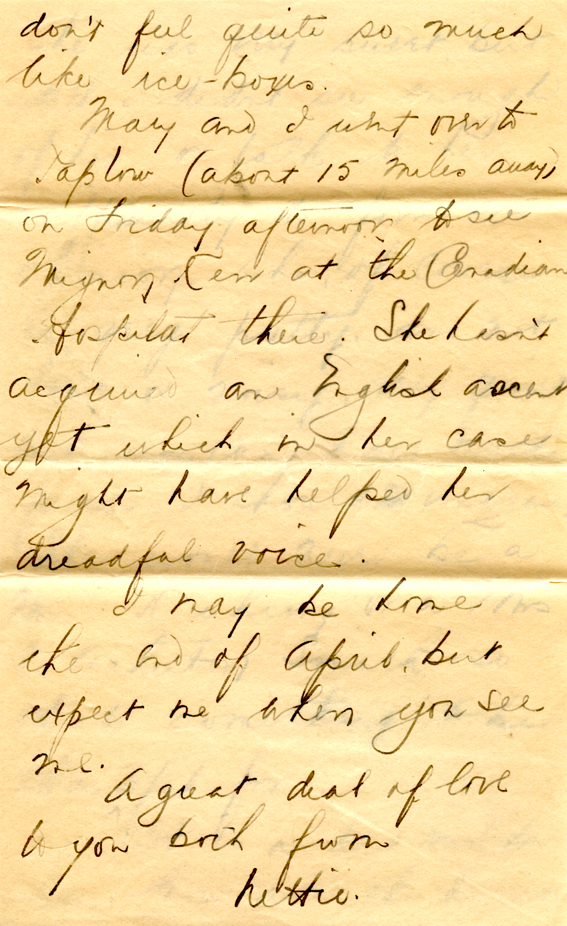 don't feel quite so much
like ice-boxes.
May and I went over to
Taplow (about 15 miles away)
on Friday afternoon to see
Mignon Kerr at the Canadian
Hospital there. She hasn't
acquired an English ascent
yet which in her case
might have helped her
dreadful voice.
I may be home
the end of April, but
expect me when you see
me.
A great deal of love
to you both from
Nettie.